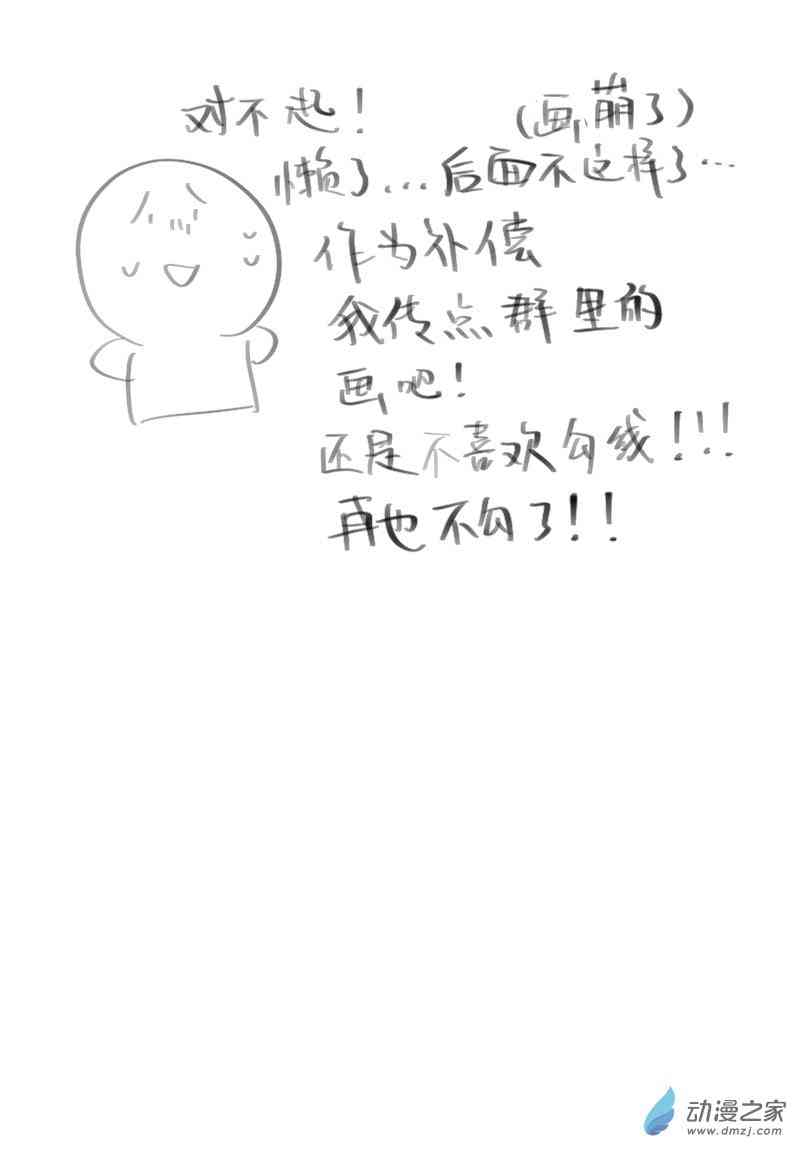 对不起！ （画崩了）
懒了...后面不这样了...
作为补偿
我传点群里的
画吧！
还是不喜欢勾线!!!
再也不勾了!!
动漫之家
www.dmzj.com